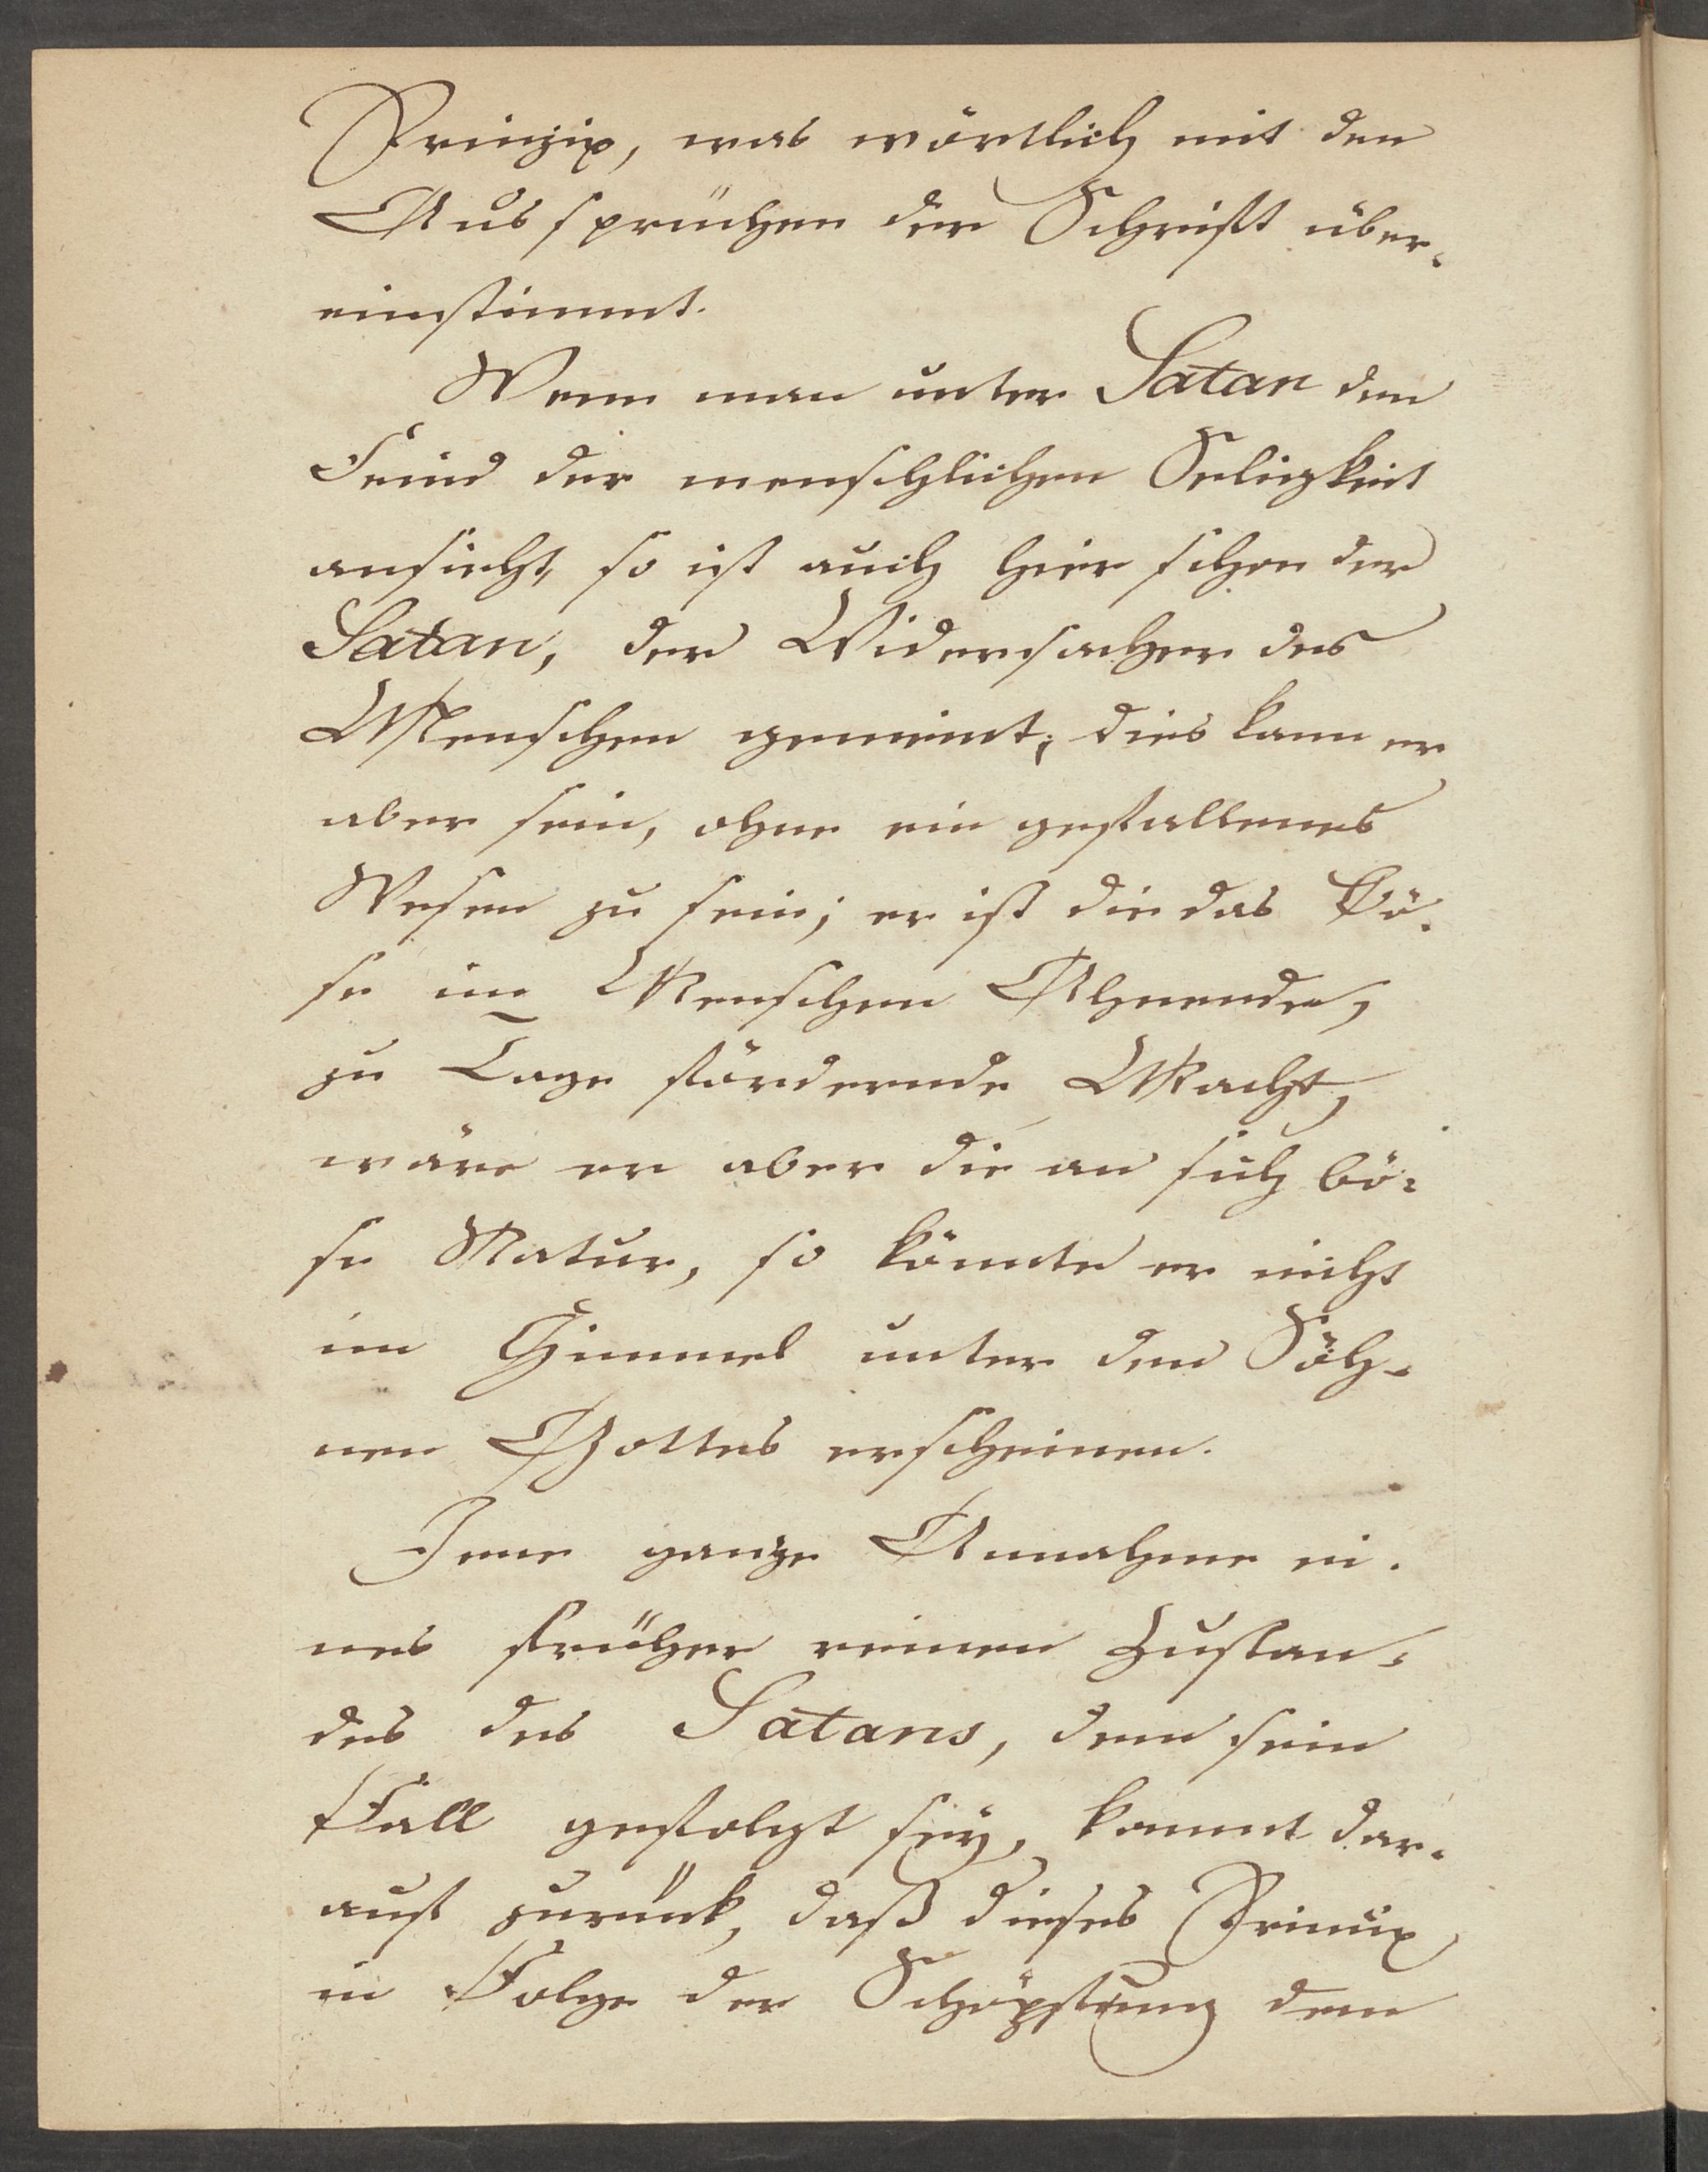 Prinzip, was wörtlich mit den
Aussprüchen der Schrift über-
einstimmt.
Wenn man unter Satan den
Feind der menschlichen Seligkeit
ansieht, so ist auch hier schon der
Satan, der Widersacher des
Menschen gemeint; dies kann er
aber sein, ohne ein gefallenes
Wesen zu sein; er ist die das Bö-
se im Menschen Ahnende,
zu Tage fördernde Macht,
wäre er aber die an sich bö-
se Natur, so könnte er nicht
im Himmel unter den Söh-
nen Gottes erscheinen.
Jene ganze Annahme ei-
nes früher reinen Zustan-
des des Satans, dem sein
Fall gefolgt sey, kommt dar-
auf zurück, daß dieses Prinzip
in Folge der Schöpfung dem